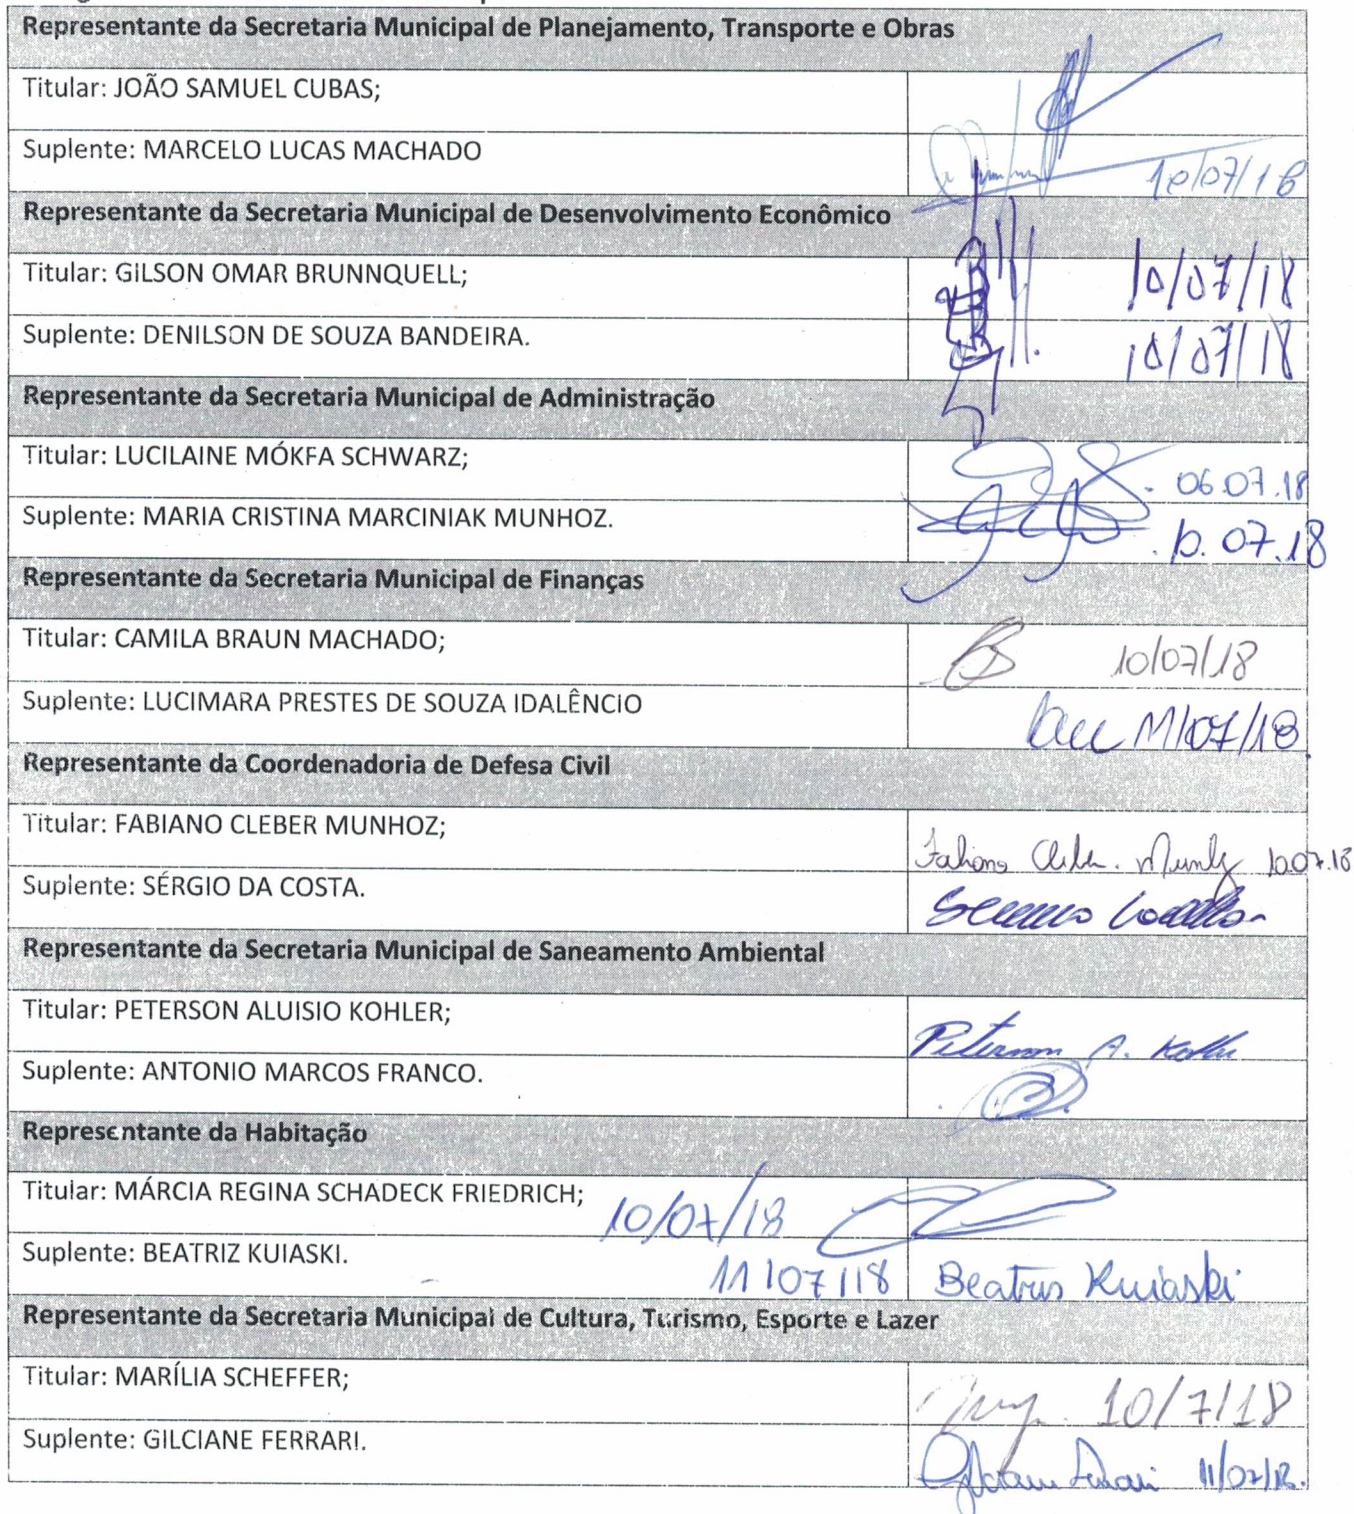 Representante da Secretaria Municipal de Planejamento, Transporte e Obras
Titular: JOÃO SAMUEL CUBAS;
Suplente: MARCELO LUCAS MACHADO
10/07/18
Representante da Secretaria Municipal de Desenvolvimento Econômico
Titular: GILSON OMAR BRUNNQUELL;
10/07/18
Suplente: DENILSON DE SOUZA BANDEIRA.
10/07/18
Representante da Secretaria Municipal de Administração
Titular: LUCILAINE MÓKFA SCHWARZ;
06.07.18
Suplente: MARIA CRISTINA MARCINIAK MUNHOZ.
10.07.18
Representante da Secretaria Municipal de Finanças
Titular: CAMILA BRAUN MACHADO;
10/07/18
Suplente: LUCIMARA PRESTES DE SOUZA IDALÊNCIO
11/07/18
Representante da Coordenadoria de Defesa Civil
Titular: FABIANO CLEBER MUNHOZ;
Fabiano Cleber Munhoz 10.07.18
Suplente: SÉRGIO DA COSTA.
Representante da Secretaria Municipal de Saneamento Ambiental
Titular: PETERSON ALUISIO KOHLER;
Peterson A. Kohler
Suplente: ANTONIO MARCOS FRANCO.
Representante da Habitação
Titular: MÁRCIA REGINA SCHADECK FRIEDRICH;
10/07/18
Suplente: BEATRIZ KUIASKI.
11/07/18 Beatris Kuiaski
Representante da Secretaria Municipal de Cultura, Turismo, Esporte e Lazer
Titular: MARÍLIA SCHEFFER;
10/7/18
Suplente: GILCIANE FERRARI.
Gilciane Ferrari 11/07/18.